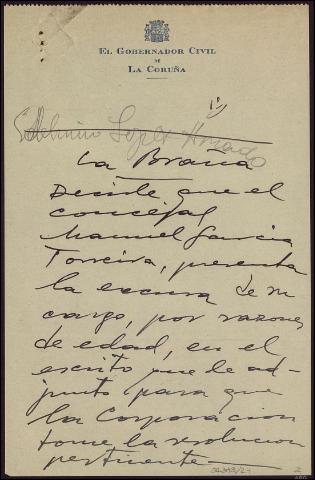 EL GOBERNADOR CIVIL
DE
LA CORUÑA
Lopez
La Braña
Decirle que el
concejal
Manuel Garcia
Torreira, presenta
la excusa de su
cargo, por razones
de edad, en el
escrito que le ad-
junto para que
la Corporacion
tome la resolucion
pertinente
2